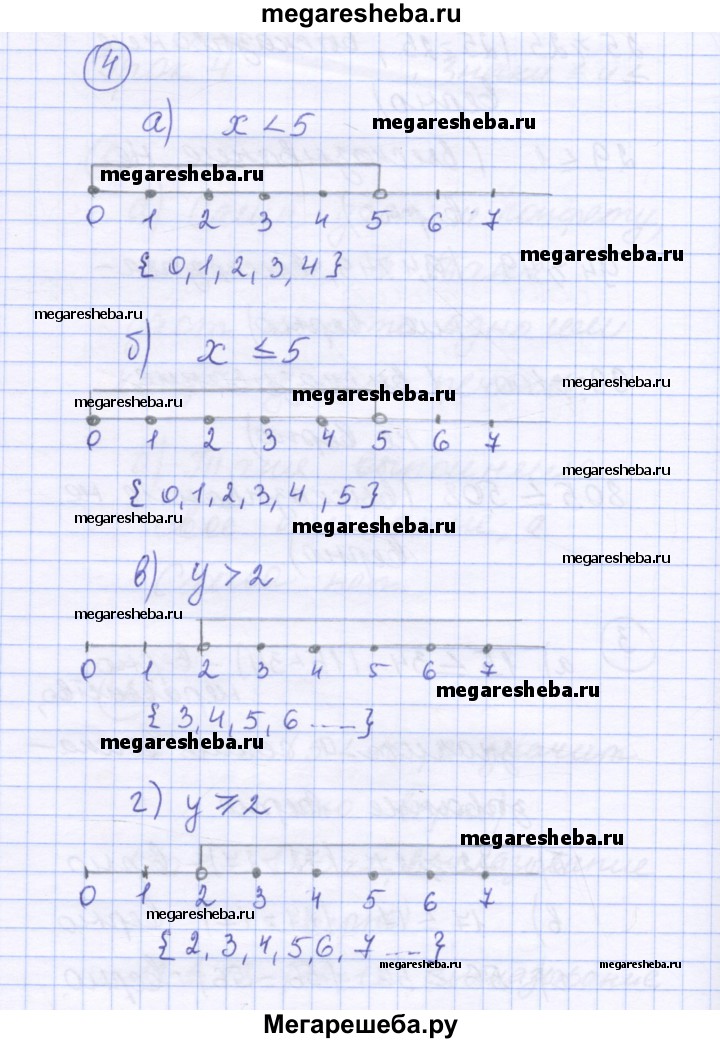 megaresheba.ru
4
а) x < 5
megaresheba.ru
megaresheba.ru
0 1 2 3 4 5 6 7
megaresheba.ru
{ 0, 1, 2, 3, 4 }
megaresheba.ru
б) x ≤ 5
megaresheba.ru
megaresheba.ru
megaresheba.ru
0 1 2 3 4 5 6 7
megaresheba.ru
{ 0, 1, 2, 3, 4 , 5 }
megaresheba.ru
megaresheba.ru
megaresheba.ru
в) y > 2
megaresheba.ru
0 1 2 3 4 5 6 7
megaresheba.ru
{ 3, 4, 5, 6 .... }
megaresheba.ru
г) y ⩾ 2
megaresheba.ru
0 1 2 3 4 5 6 7
megaresheba.ru
{ 2, 3, 4, 5, 6, 7 .... }
megaresheba.ru
megaresheba.ru
Мегарешеба.ру